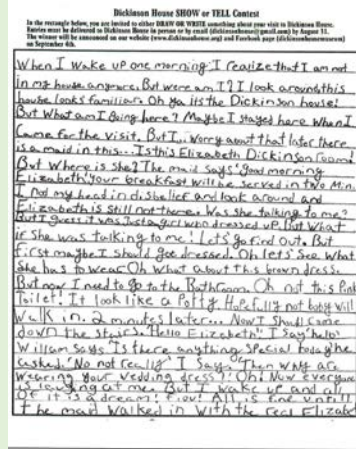 Dickinson House SHOW or TELL Contest
In the rectangle below, you are invited to either DRAW OR WRITE something about your visit to Dickinson House.
Entries must be delivered to Dickinson House in person or by email (dickinsonhouse@gmail.com) by August 31.
The winner will be announced on our website (www.dickinsonhouse.org) and Facebook page (dickinsonhousemuseum)
on September 4th.
When I wake up one morning I realize that I am not
in my house anymore. But were am I? I look around this
house looks familiar. Oh ya its the Dickinson house!
But What am I doing here? Maybe I stayed here when I
Came for the visit. But I... Worry about that later there
is a maid in this... Is this Elizabeth Dickinson room!
But Where is she? The maid says "good morning
Elizabeth! your breakfast will be served in two Min.
I Nod my head in disbelief and look around and
Elizabeth is still not there. Was she talking to me?
But I guess it was Just a girl who dressed up. But What
if She was talking to me! Lets go find out. But
first maybe I should get dressed. Oh lets See What
she has to wear Oh What about this brown dress.
But now I need to go to the Bathroom. Oh not this Pink
Toilet! It look like a Potty. Hopefully not body will
Walk in. 2 minutes later... Now I Should come
down the stairs. "Hello Elizabeth!" I Say "hello"
William Says Is there anything Special today he
asked. "No not really" I Say. Then why are
wearing Your Wedding dress?! Oh! Now everyone
is laughing at me. But I wake up and all
Of it is a dream! Fiew! All is fine untill
The maid Walked in With the real Elizabe